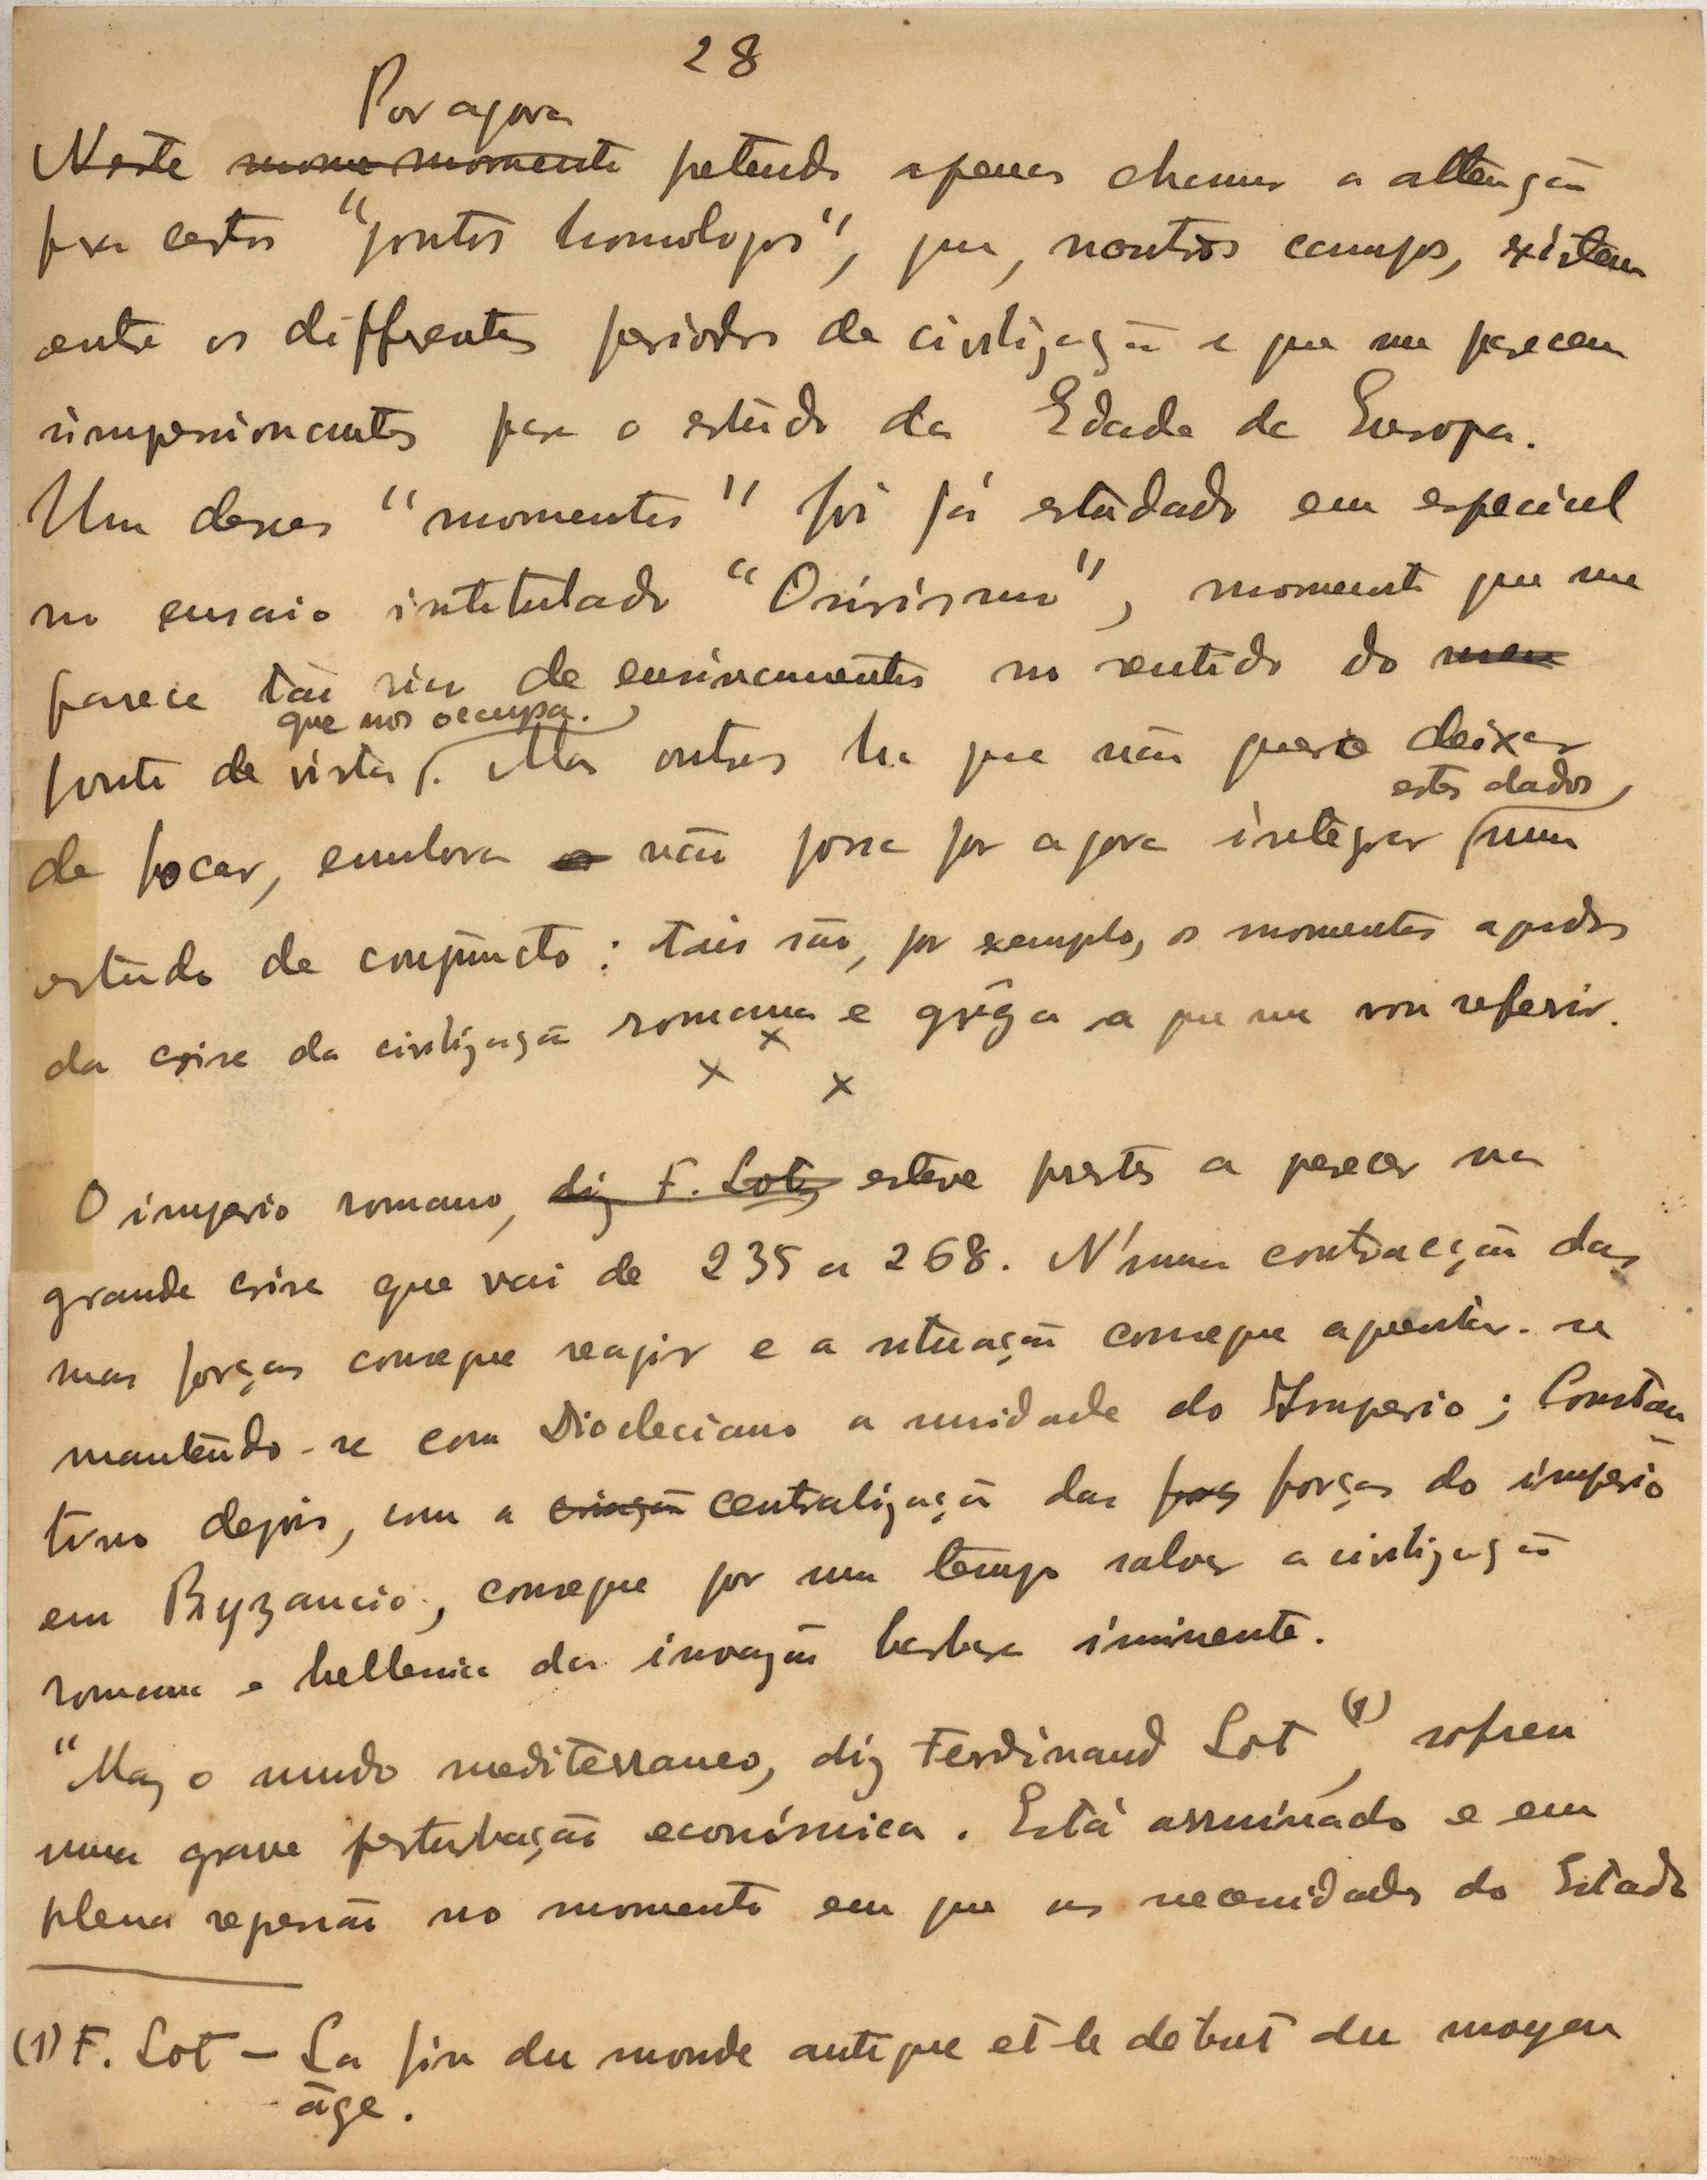 28
Por agora
Neste mome momento pretendo apenas chamar a attenção
para certos "pontos homologos", que, noutros campos, existem
entre os differentes periodos da civilização e que me parecem
impressionantes para o estudo da Edade da Europa.
Um desses "momentos" foi já estudado em especial
no ensaio intitulado "Osirismo", momento que me
parece tão rico de ensinamentos no sentido do meu
que nos occupa.
ponto de vista. Mas outros ha que não quero deixar
estes dados
de focar, embora o não possa por agora integrar num
estudo de conjuncto: tais são, por exemplo, os momentos agudos
da crise da civilização romana e grêga a que me vou referir.
x
x x
O imperio romano, diz F. Lot, esteve prestes a perecer na
grande crise que vai de 235 a 268. N'uma contracção das
suas forças consegue reagir e a situação consegue aguentar-se
mantendo-se com Diocleciano a unidade do Imperio; Constan-
tino depois, com a criação centralização das forças forças do imperio
em Byzancio, consegue por um tempo salvar a civilização
romana e hellenica da invazão barbara iminente.
"Mas o mundo mediterraneo, diz Ferdinand Lot (1), sofreu
uma grave perturbação económica. Está arruinado e em
plena regressão no momento em que as necessidades do Estado
(1) F. Lot - La fin du monde antique et le début du moyen
âge.